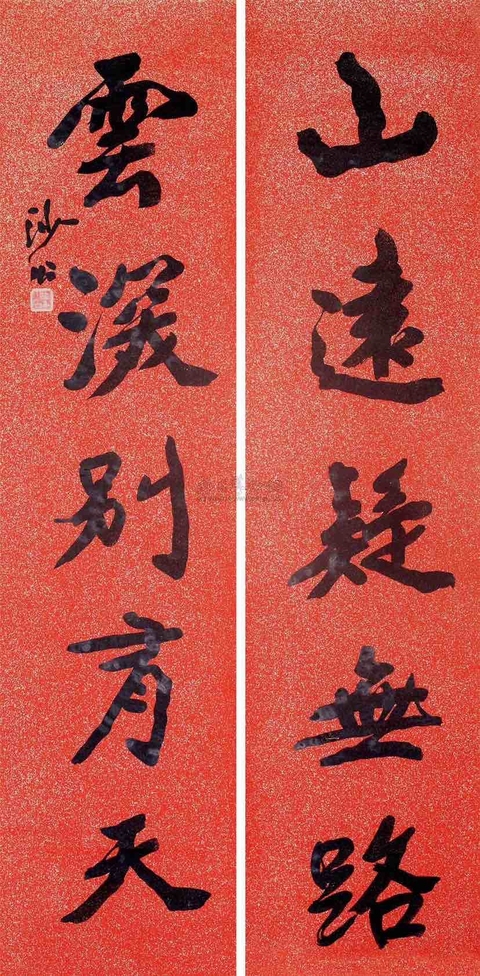 山遠疑無路
雲深別有天
沙公